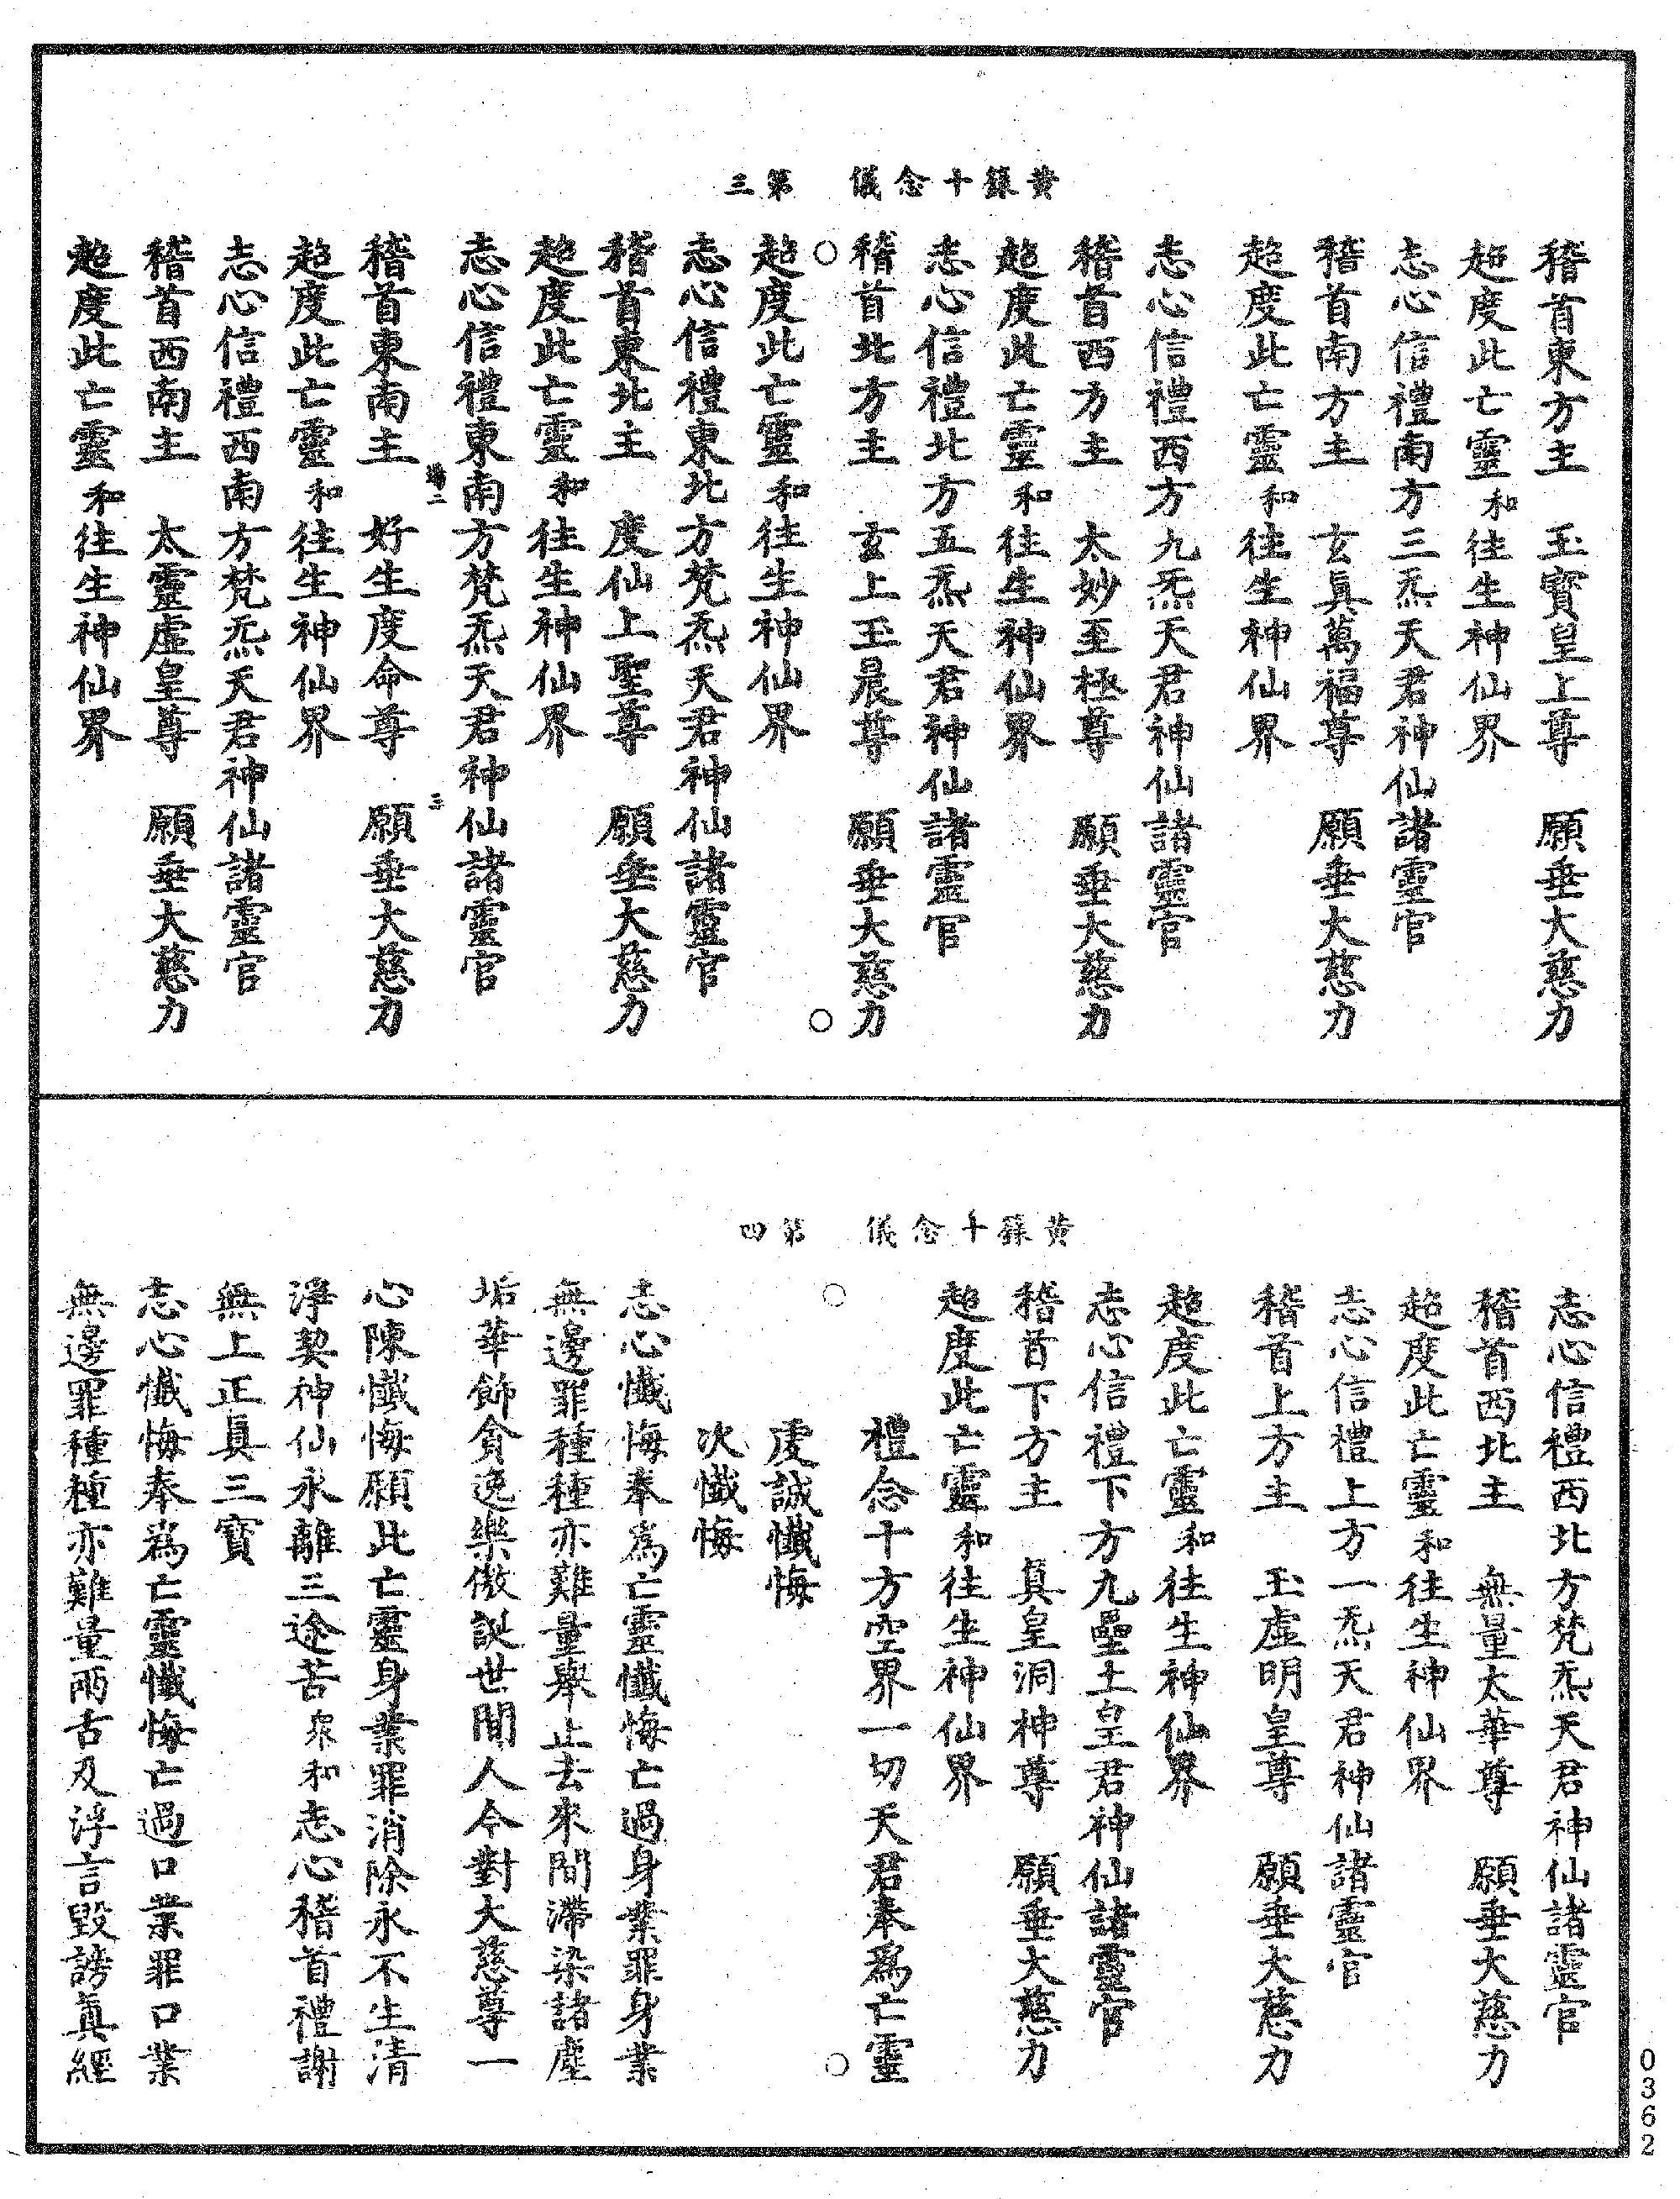 黃籙十念儀　第三
稽首東方主　玉寳皇上尊　願垂大慈力
超度此亡靈和往生神仙界
志心信禮南方三炁天君神仙諸靈官
稽首南方主　玄眞萬福尊　願垂大慈力
超度此亡靈和往生神仙界
志心信禮西方九炁天君神仙諸靈官
稽首西方主　太妙至極尊　願垂大慈力
超度此亡靈和往生神仙界
志心信禮北方五炁天君神仙諸靈官
稽首北方主　玄上玉晨尊　願垂大慈力
超度此亡靈和往生神仙界
志心信禮東北方梵炁天君神仙諸靈官
稽首東北主　度仙上聖尊　願垂大慈力
超度此亡靈和往生神仙界
志心信禮東南方梵炁天君神仙諸靈官
二　三
稽首東南主　好生度命尊　願垂大慈力
超度此亡靈和往生神仙界
志心信禮西南方梵炁天君神仙諸靈官
稽首西南主　太靈虛皇尊　願垂大慈力
超度此亡靈和往生神仙界
黃籙十念儀　第四
志心信禮西北方梵炁天君神仙諸靈官
稽首西北主　無量太華尊　願垂大慈力
超度此亡靈和往生神仙界
志心信禮上方一炁天君神仙諸靈官
稽首上方主　玉虛明皇尊　願垂大慈力
超度此亡靈和往生神仙界
志心信禮下方九壘土皇君神仙諸靈官
稽首下方主　眞皇洞神尊　願垂大慈力
超度此亡靈和往生神仙界
禮念十方空界一切天君奉爲亡靈
虔誠懺悔
次懺悔
志心懺悔奉爲亡靈懺悔亡過身業罪身業
無邊罪種種亦難量舉止去來間滯染諸塵
垢華飾貪逸樂傲誕世間人今對大慈尊一
心陳懺悔願此亡靈身業罪消除永不生清
淨契神仙永離三途苦衆和志心稽首禮謝
無上正眞三寳
志心懺悔奉爲亡靈懺悔亡過口業罪口業
無邊罪種種亦難量兩舌及浮言毀謗眞經
0362